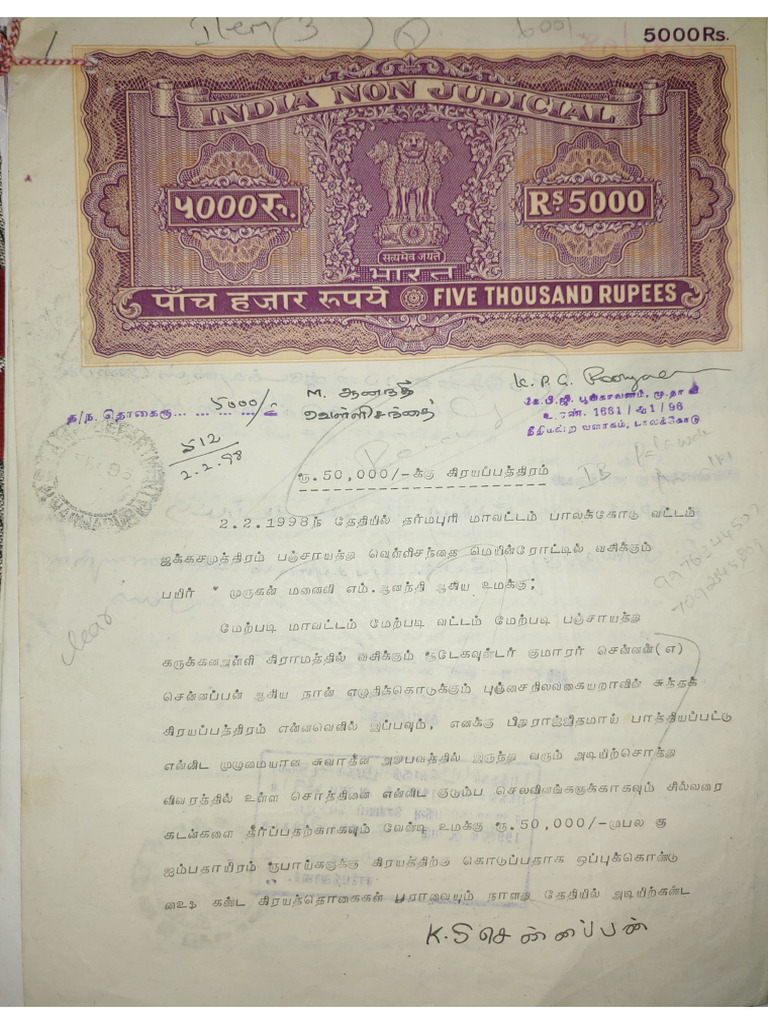 Item (3)
5000Rs.
INDIA NON JUDICIAL
५000रु.
Rs 5000
सत्यमेव जयते
भारत
पाँच हज़ार रुपये FIVE THOUSAND RUPEES
த/ந. தொகைரூ... 5000/-
M. ஆனந்தி
வெள்ளிசந்தை
K. P. G.
கே.பி.ஜி. பூங்காவனம், மு.தா வி
உ.எண். 1681 / 96
நீதிமன்ற வளாகம், பாலக்கோடு
512
2.2.98
ரூ.50,000/-க்கு கிரயப்பத்திரம்
2.2.1998ந் தேதியில் தர்மபுரி மாவட்டம் பாலக்கோடு வட்டம்
ஜக்கசமுத்திரம் பஞ்சாயத்து வெள்ளிசந்தை மெயின்ரோட்டில் வசிக்கும்
முருகன் மனைவி எம்.ஆனந்தி ஆகிய உமக்கு;
மேற்படி மாவட்டம் மேற்படி வட்டம் மேற்படி பஞ்சாயத்து
கிராமத்தில் வசிக்கும் குமாரர் சென்னன்(எ)
சென்னப்பன் ஆகிய நான் எழுதிக்கொடுக்கும் புஞ்சைநிலவகையறாவின் சுத்தக்
கிரயப்பத்திரம் என்னவெனில் இப்பவும், எனக்கு பிதுராஜிதமாய் பாத்தியப்பட்டு
என்னிட முழுமையான சுவாதீன அனுபவத்தில் இருந்து வரும் அடியிற்சொத்து
விவரத்தில் உள்ள சொத்தினை என்னிட குடும்ப செலவினங்களுக்காகவும் சில்லரை
கடன்களை தீர்ப்பதற்காகவும் வேண்டி உமக்கு ரூ.50,000/-
ஐம்பதாயிரம் ரூபாய்களுக்கு கிரயத்திற்கு கொடுப்பதாக ஒப்புக்கொண்டு
கண்ட கிரயத்தொகைகள் பூராவையும் நாளது தேதியில் அடியிற்கண்ட
K.S சென்னப்பன்
clear